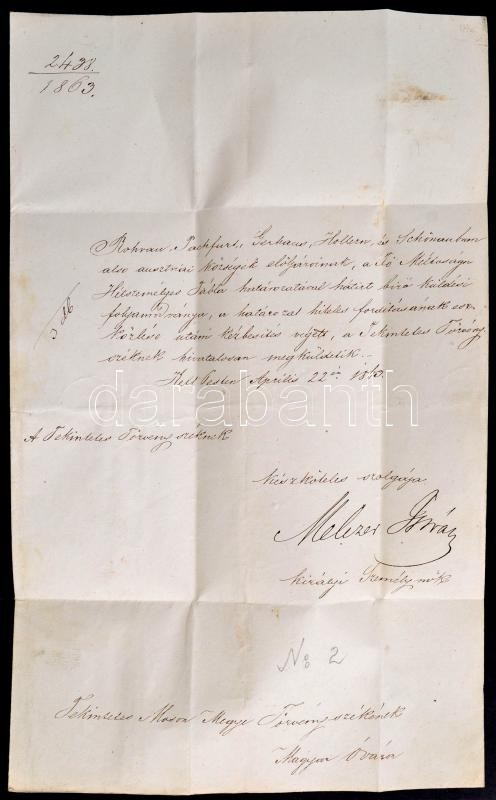 2438.
1863.
Rohrau, Pachfurt, Gerhaus, Hollern, és Schönaubrun
alsó ausztriai községek előljáróinak, a Fő Méltóságu
Hétszemélyes Tábla határozatával hátirt biró küldési
folyamodványa, a határozat hiteles forditásának
közlése utáni kézbesités végett, a Tekintetes Törvény
széknek hivatalosan megküldetik.
Kelt Pesten Április 22én 1863.
A Tekintetes Törvény széknek
készköteles szolgája
Melczer István
királyi Személynök
No: 2
Tekintetes Moson Megye Törvényszékének
Magyar Óvárn
darabanth